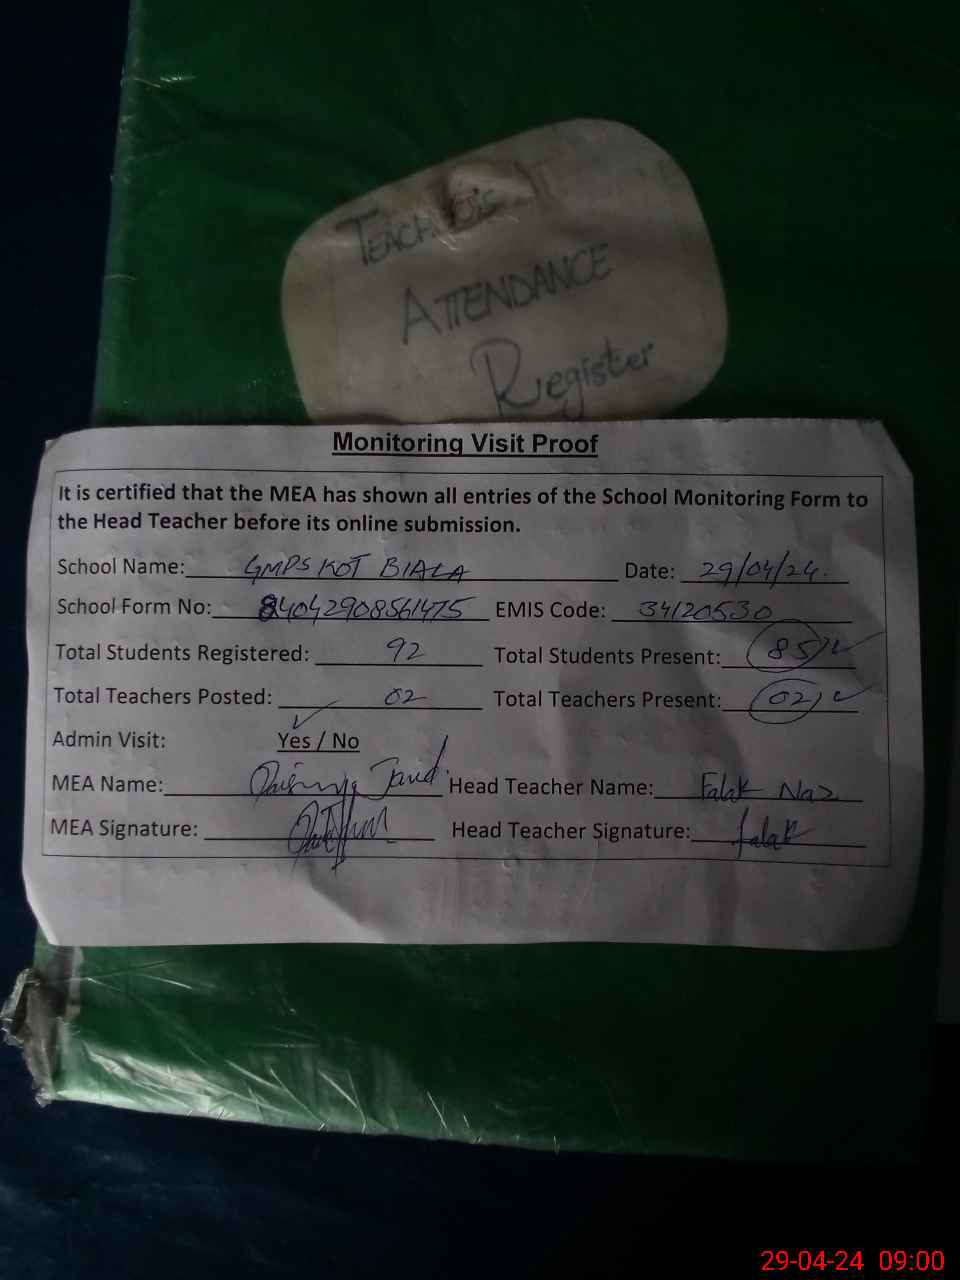 TEACHER'S
ATTENDANCE
Register
Monitoring Visit Proof
It is certified that the MEA has shown all entries of the School Monitoring Form to
the Head Teacher before its online submission.
School Name: GMPS KOT BIALA Date: 29/04/24.
School Form No: 84042908561475 EMIS Code: 34120530
Total Students Registered: 92 Total Students Present: 85
Total Teachers Posted: 02 Total Teachers Present: 02
Admin Visit: Yes / No
MEA Name: Head Teacher Name: Falak Naz
MEA Signature: Head Teacher Signature: falak
29-04-24 09:00